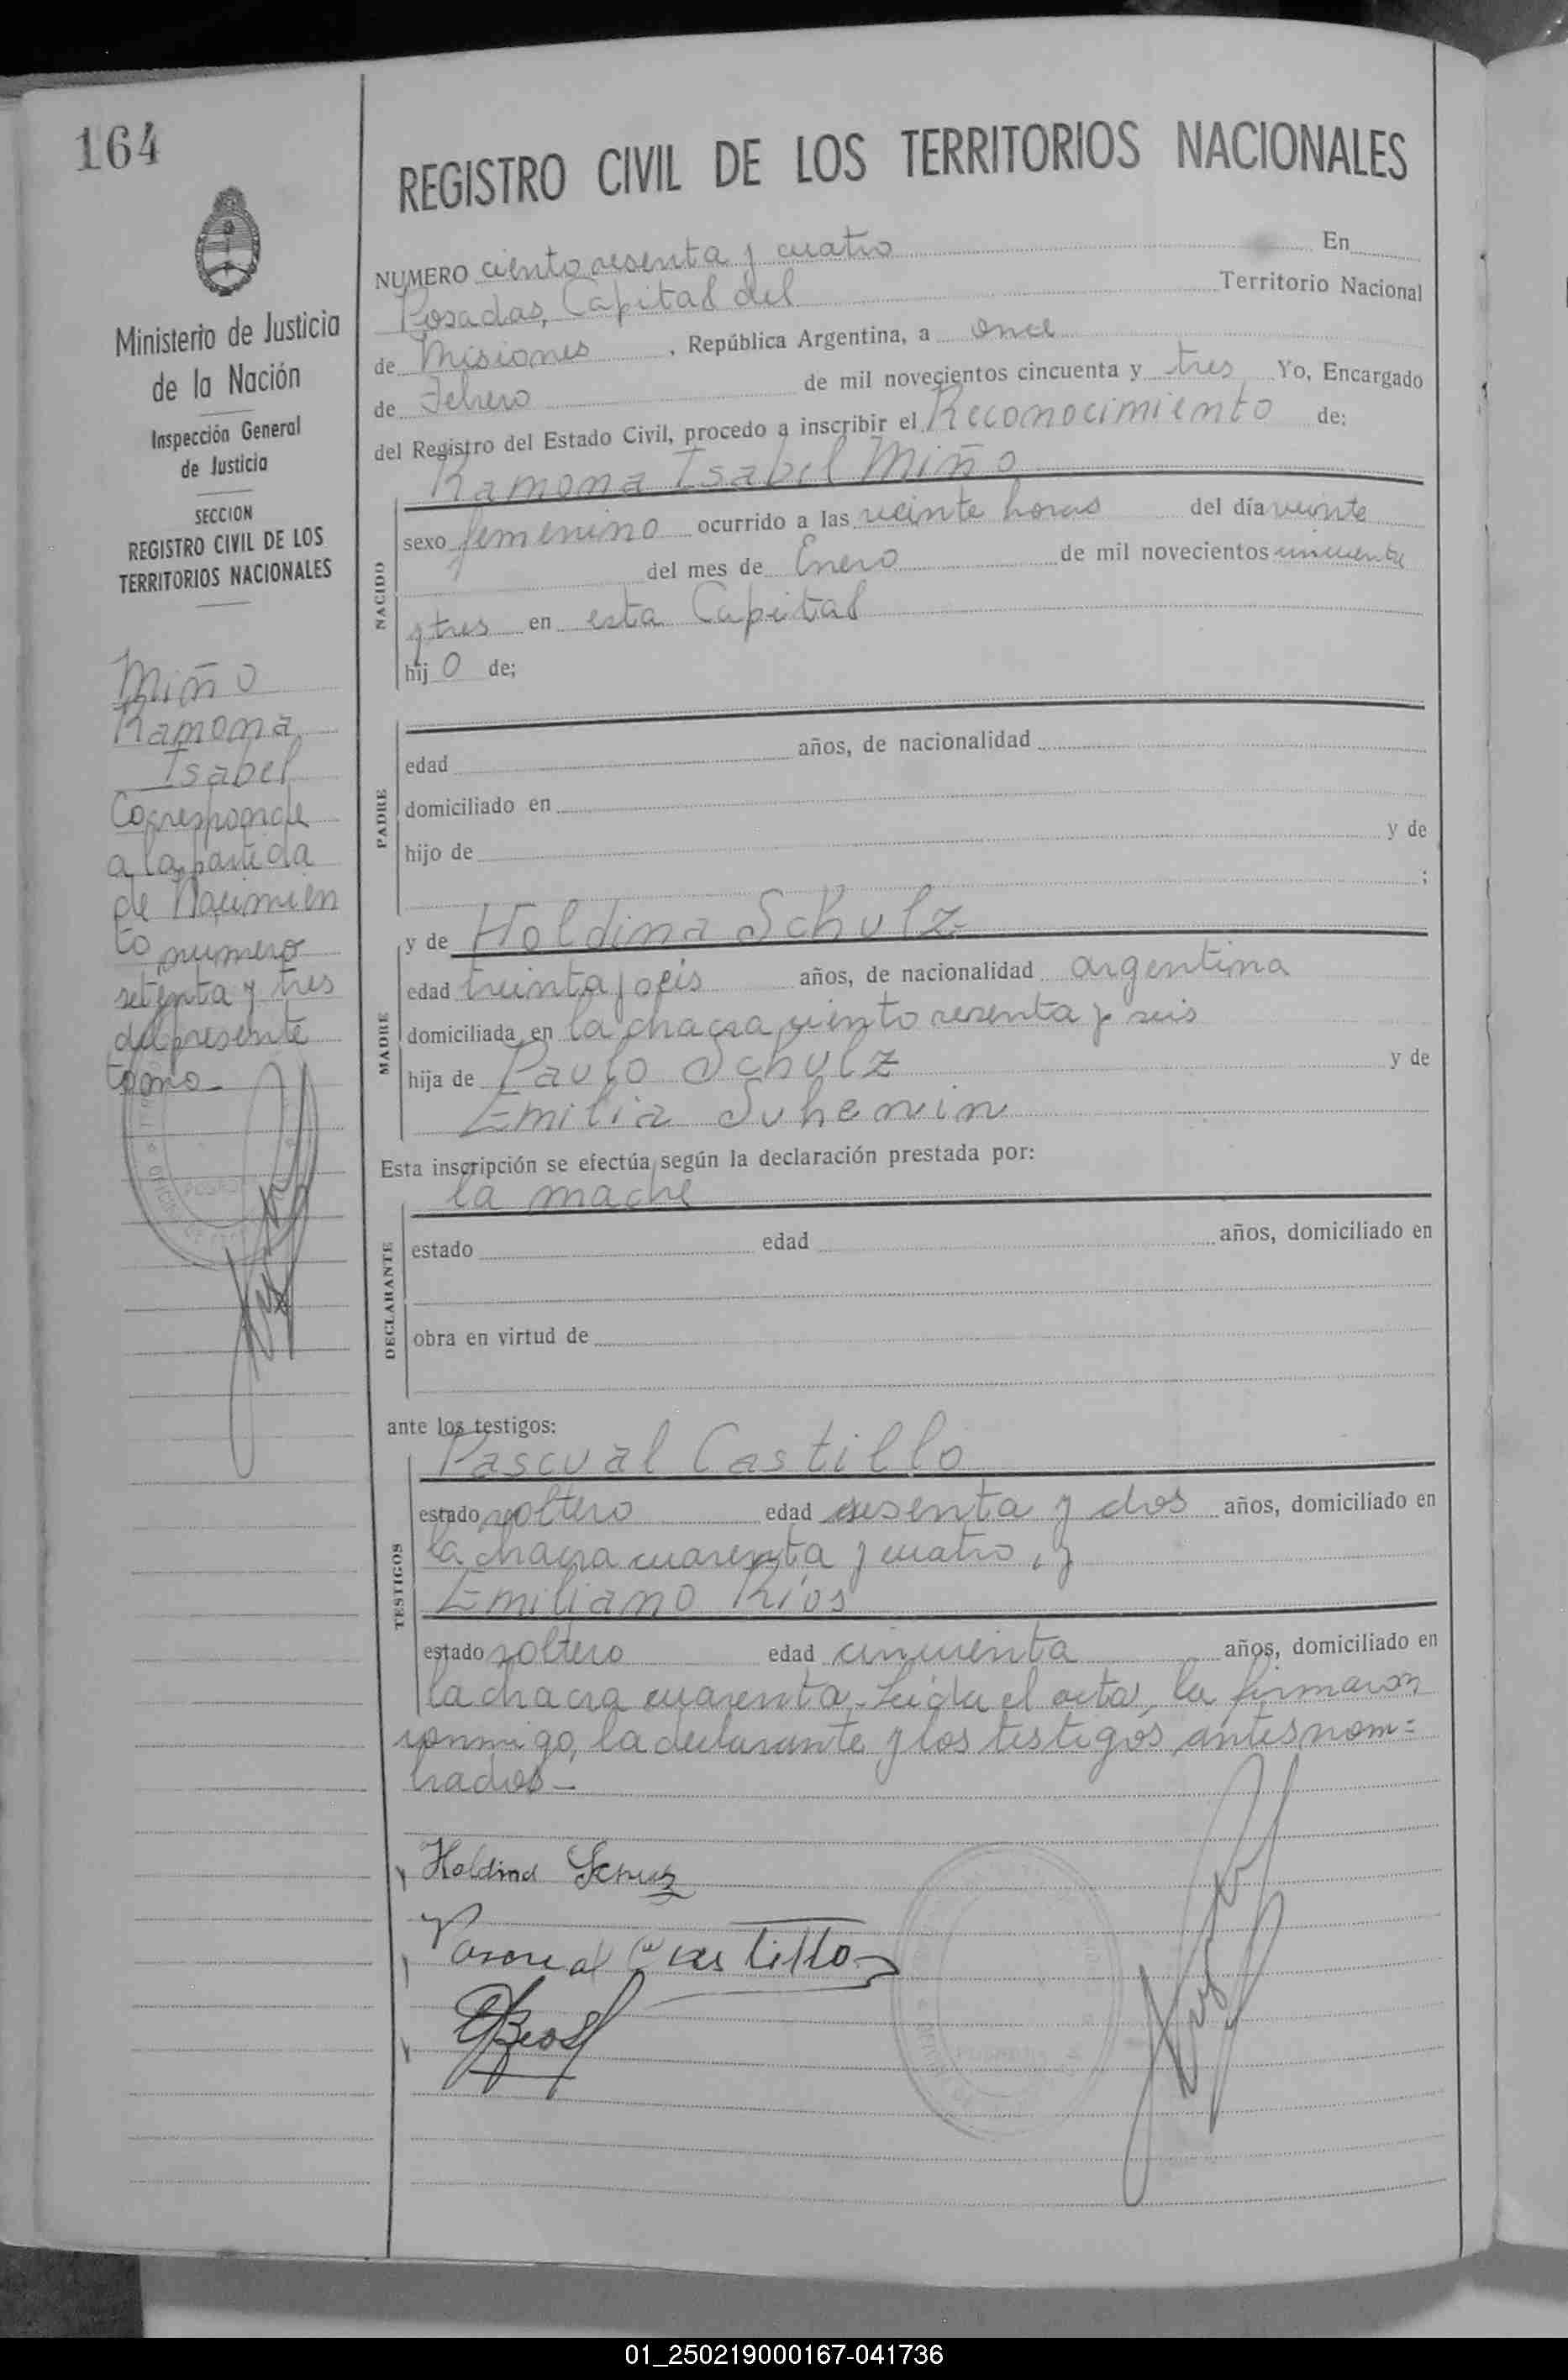 164
Ministerio de Justicia
de la Nación
Inspección General
de Justicia
SECCION
REGISTRO CIVIL DE LOS
TERRITORIOS NACIONALES
Miño
Ramona
Isabel
Corresponde
a la partida
de Nacimien
to numero
setenta y tres
del presente
tomo.-
REGISTRO CIVIL DE LOS TERRITORIOS NACIONALES
NUMERO ciento sesenta y cuatro En
Posadas, Capital del Territorio Nacional
de Misiones, República Argentina, a once
de Febrero de mil novecientos cincuenta y tres Yo, Encargado
del Registro del Estado Civil, procedo a inscribir el Reconocimiento de:
Ramona Isabel Miño
NACIDO
sexo femenino ocurrido a las veinte horas del día veinte
del mes de Enero de mil novecientos cincuenta
y tres en esta Capital
hij o de;
PADRE
edad años, de nacionalidad
domiciliado en
hijo de y de
;
MADRE
y de Holdina Schulz
edad treinta y seis años, de nacionalidad argentina
domiciliada en la chacra ciento sesenta y seis
hija de Paulo Schulz y de
Emilia
Esta inscripción se efectúa según la declaración prestada por:
la madre
DECLARANTE
estado edad años, domiciliado en
obra en virtud de
ante los testigos:
Pascual Castillo
TESTIGOS
estado soltero edad sesenta y dos años, domiciliado en
la chacra cuarenta y cuatro, y
Emiliano Ríos
estado soltero edad cincuenta años, domiciliado en
la chacra cuarenta.- Leída el acta, la firmaron
conmigo, la declarante y los testigos antes nom=
brados.-
Holdina
Pascual Castillo
01_250219000167-041736